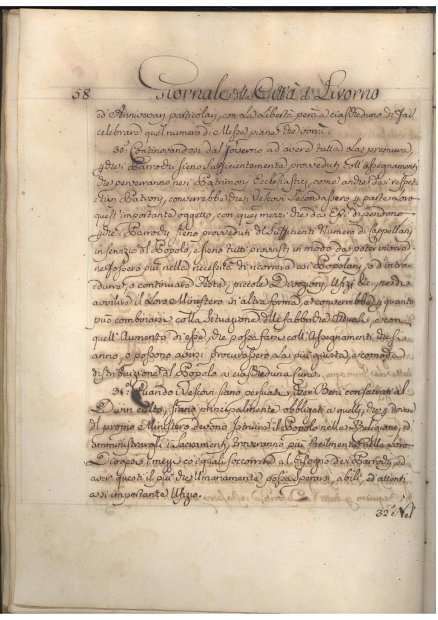 58 Giornale della Città di Livorno
d'Anniversari particolari, con la libertà però a ciascheduno di far
celebrare quel numero di Messe piane che vorrà.
30. Continovandosi dal Governo ad avere tutta la premura
che i Parrochi sieno sufficientemente provveduti coll'assegnamenti
che perverranno nei Patrimonj Ecclesiastici, come anche dai rispet-
tivi Patroni, converrebbe che i Vescovi secondassero per parte loro
quest'importante oggetto, con quei mezzi che da Essi dipendono
che i Parrochi sieno provveduti di sufficiente Numero di Cappellani
in servizio del Popolo, e sieno tutti provvisti in modo da poter vivere
ne fossero più nella necessità di ricorrere ai Popolani, o ad intro-
durre, o continuare Feste, piccole Devozioni, Ufizi &c. per non
avvilire il loro Ministero ed altra forma, e converrebbe, quanto
può combinarsi colla situazione delle
quell'Aumento di esse, che possa farsi coll'Assegnamenti che si
anno, o possono aversi procurassero la più giusta, e comoda
distribuzione del Popolo a ciascheduna Cura.
31. Quando i Vescovi siano persuasi, che i Beni consacrati al
Divin culto, siano principalmente obbligati a quelli, che per dovere
di primo Ministero devono istruire il Popolo nella Religione, ed
amministrargli i Sacramenti, troveranno più facilmente nella loro
Diogesi i mezzi co i quali soccorrere al bisogno dei Parrochi, ed
aver questi il più che umanamente possa sperarsi, abili, ed attenti
a sì importante Ufizio.
32. Nel